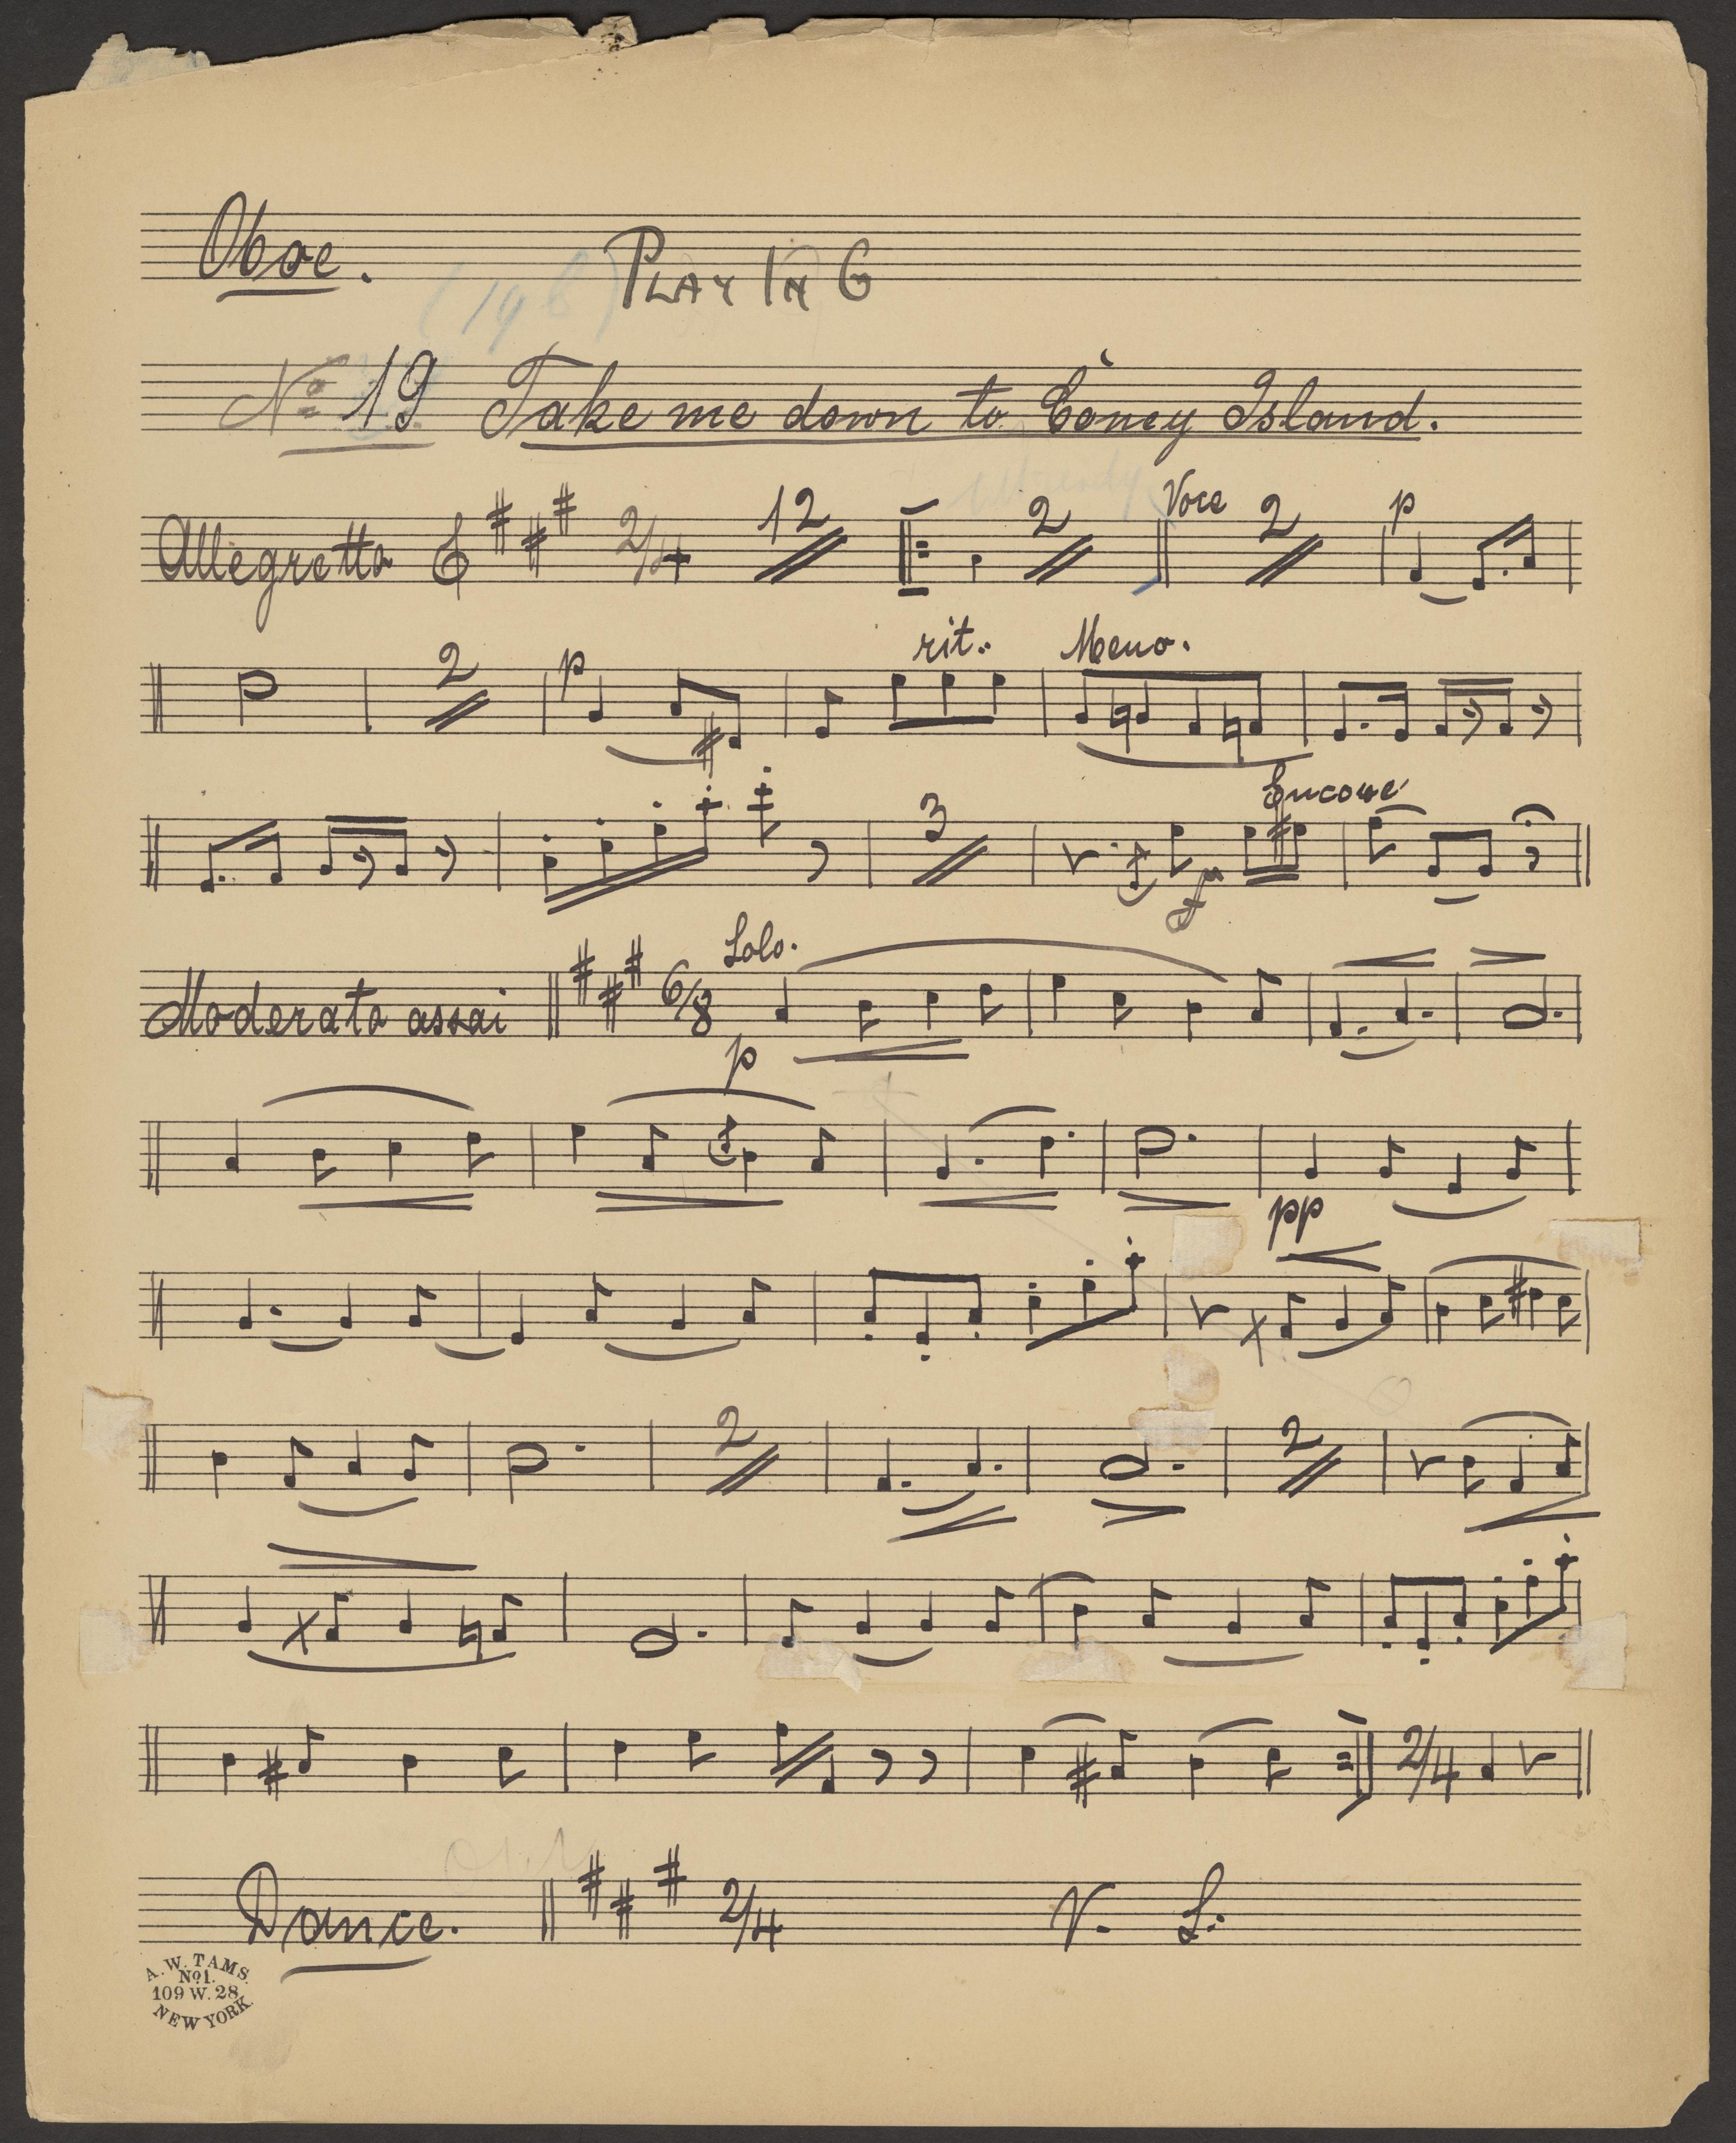 Oboe. PLAY IN G
(19b)
No 19 Take me down to Coney Island.
Allegretto 2/4 12 2 Voce 2 p
2 p rit. Meno.
3 Encore
Moderato assai 6/8 Solo.
p
pp
2 2
2/4
Dance. 2/4 V. S.
A. W. TAMS.
No1.
109 W. 28.
NEW YORK.